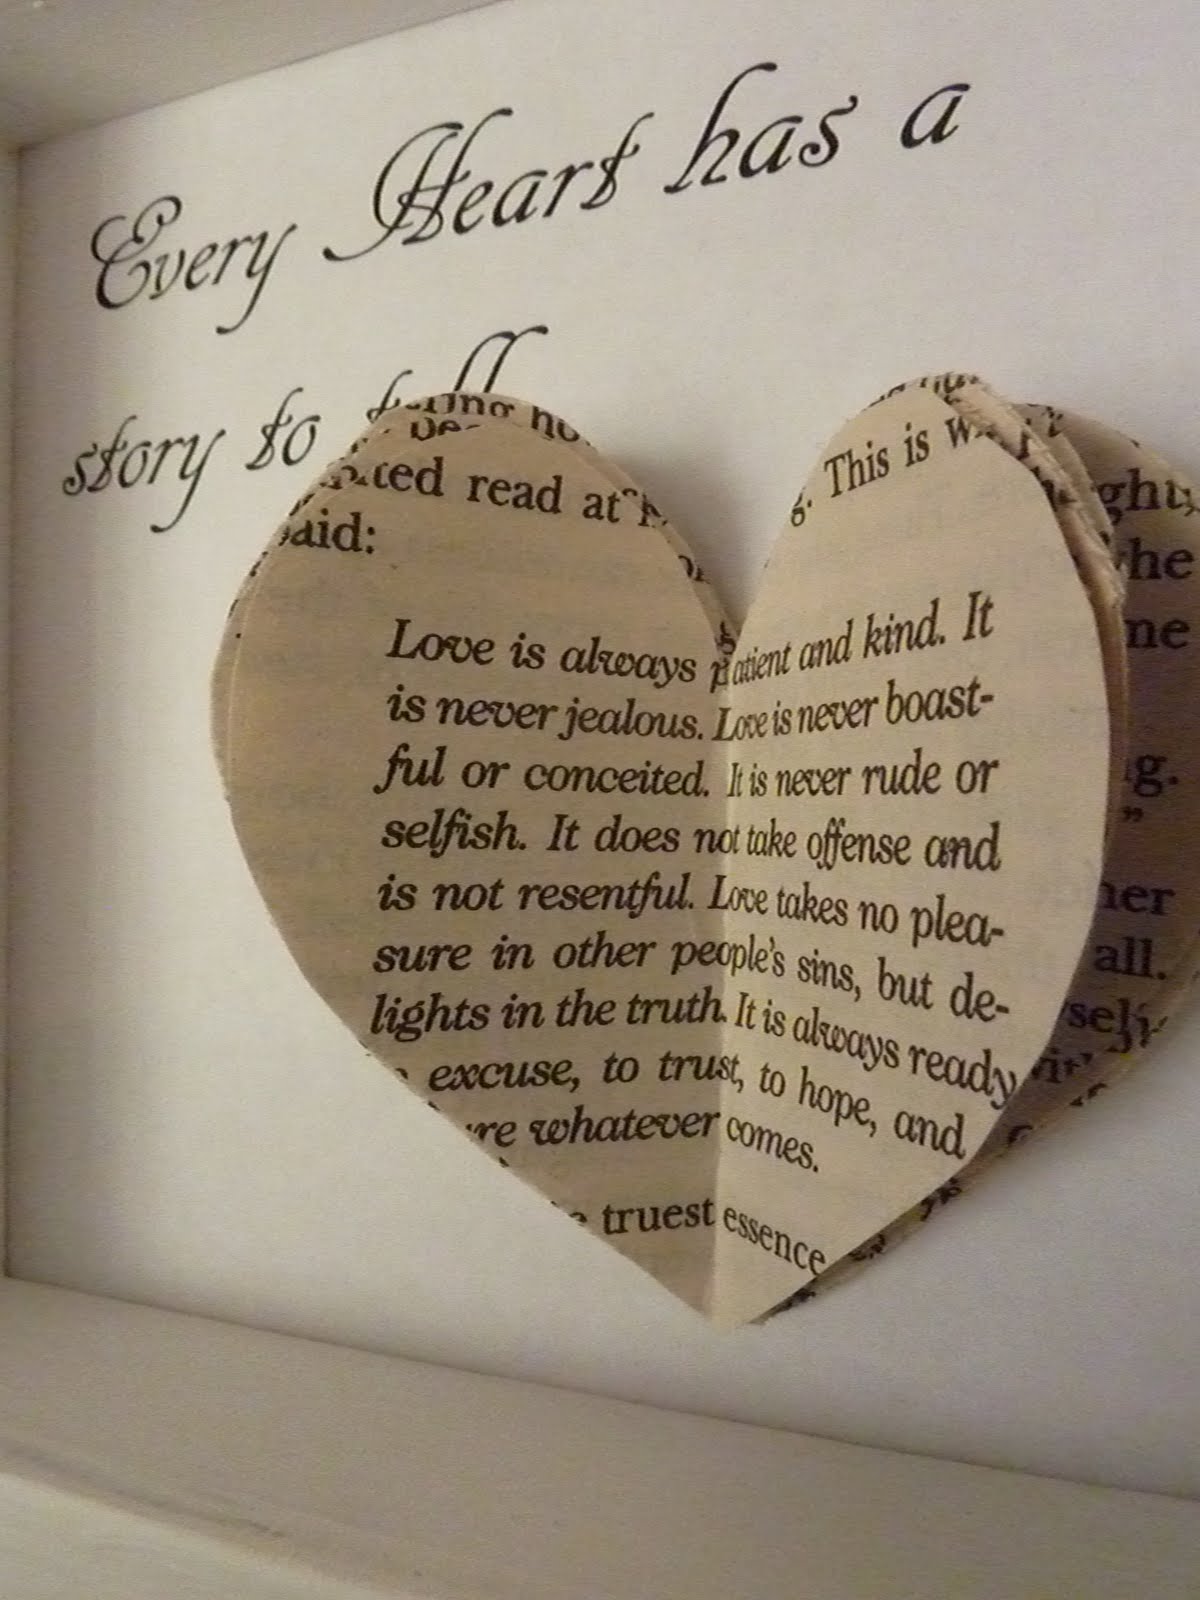 Every Heart has a
story to tell
read at
This is
Love is always patient and kind. It
is never jealous. Love is never boast-
ful or conceited. It is never rude or
selfish. It does not take offense and
is not resentful. Love takes no plea-
sure in other people's sins, but de-
lights in the truth. It is always ready
excuse, to trust, to hope, and
whatever comes.
truest essence
all.